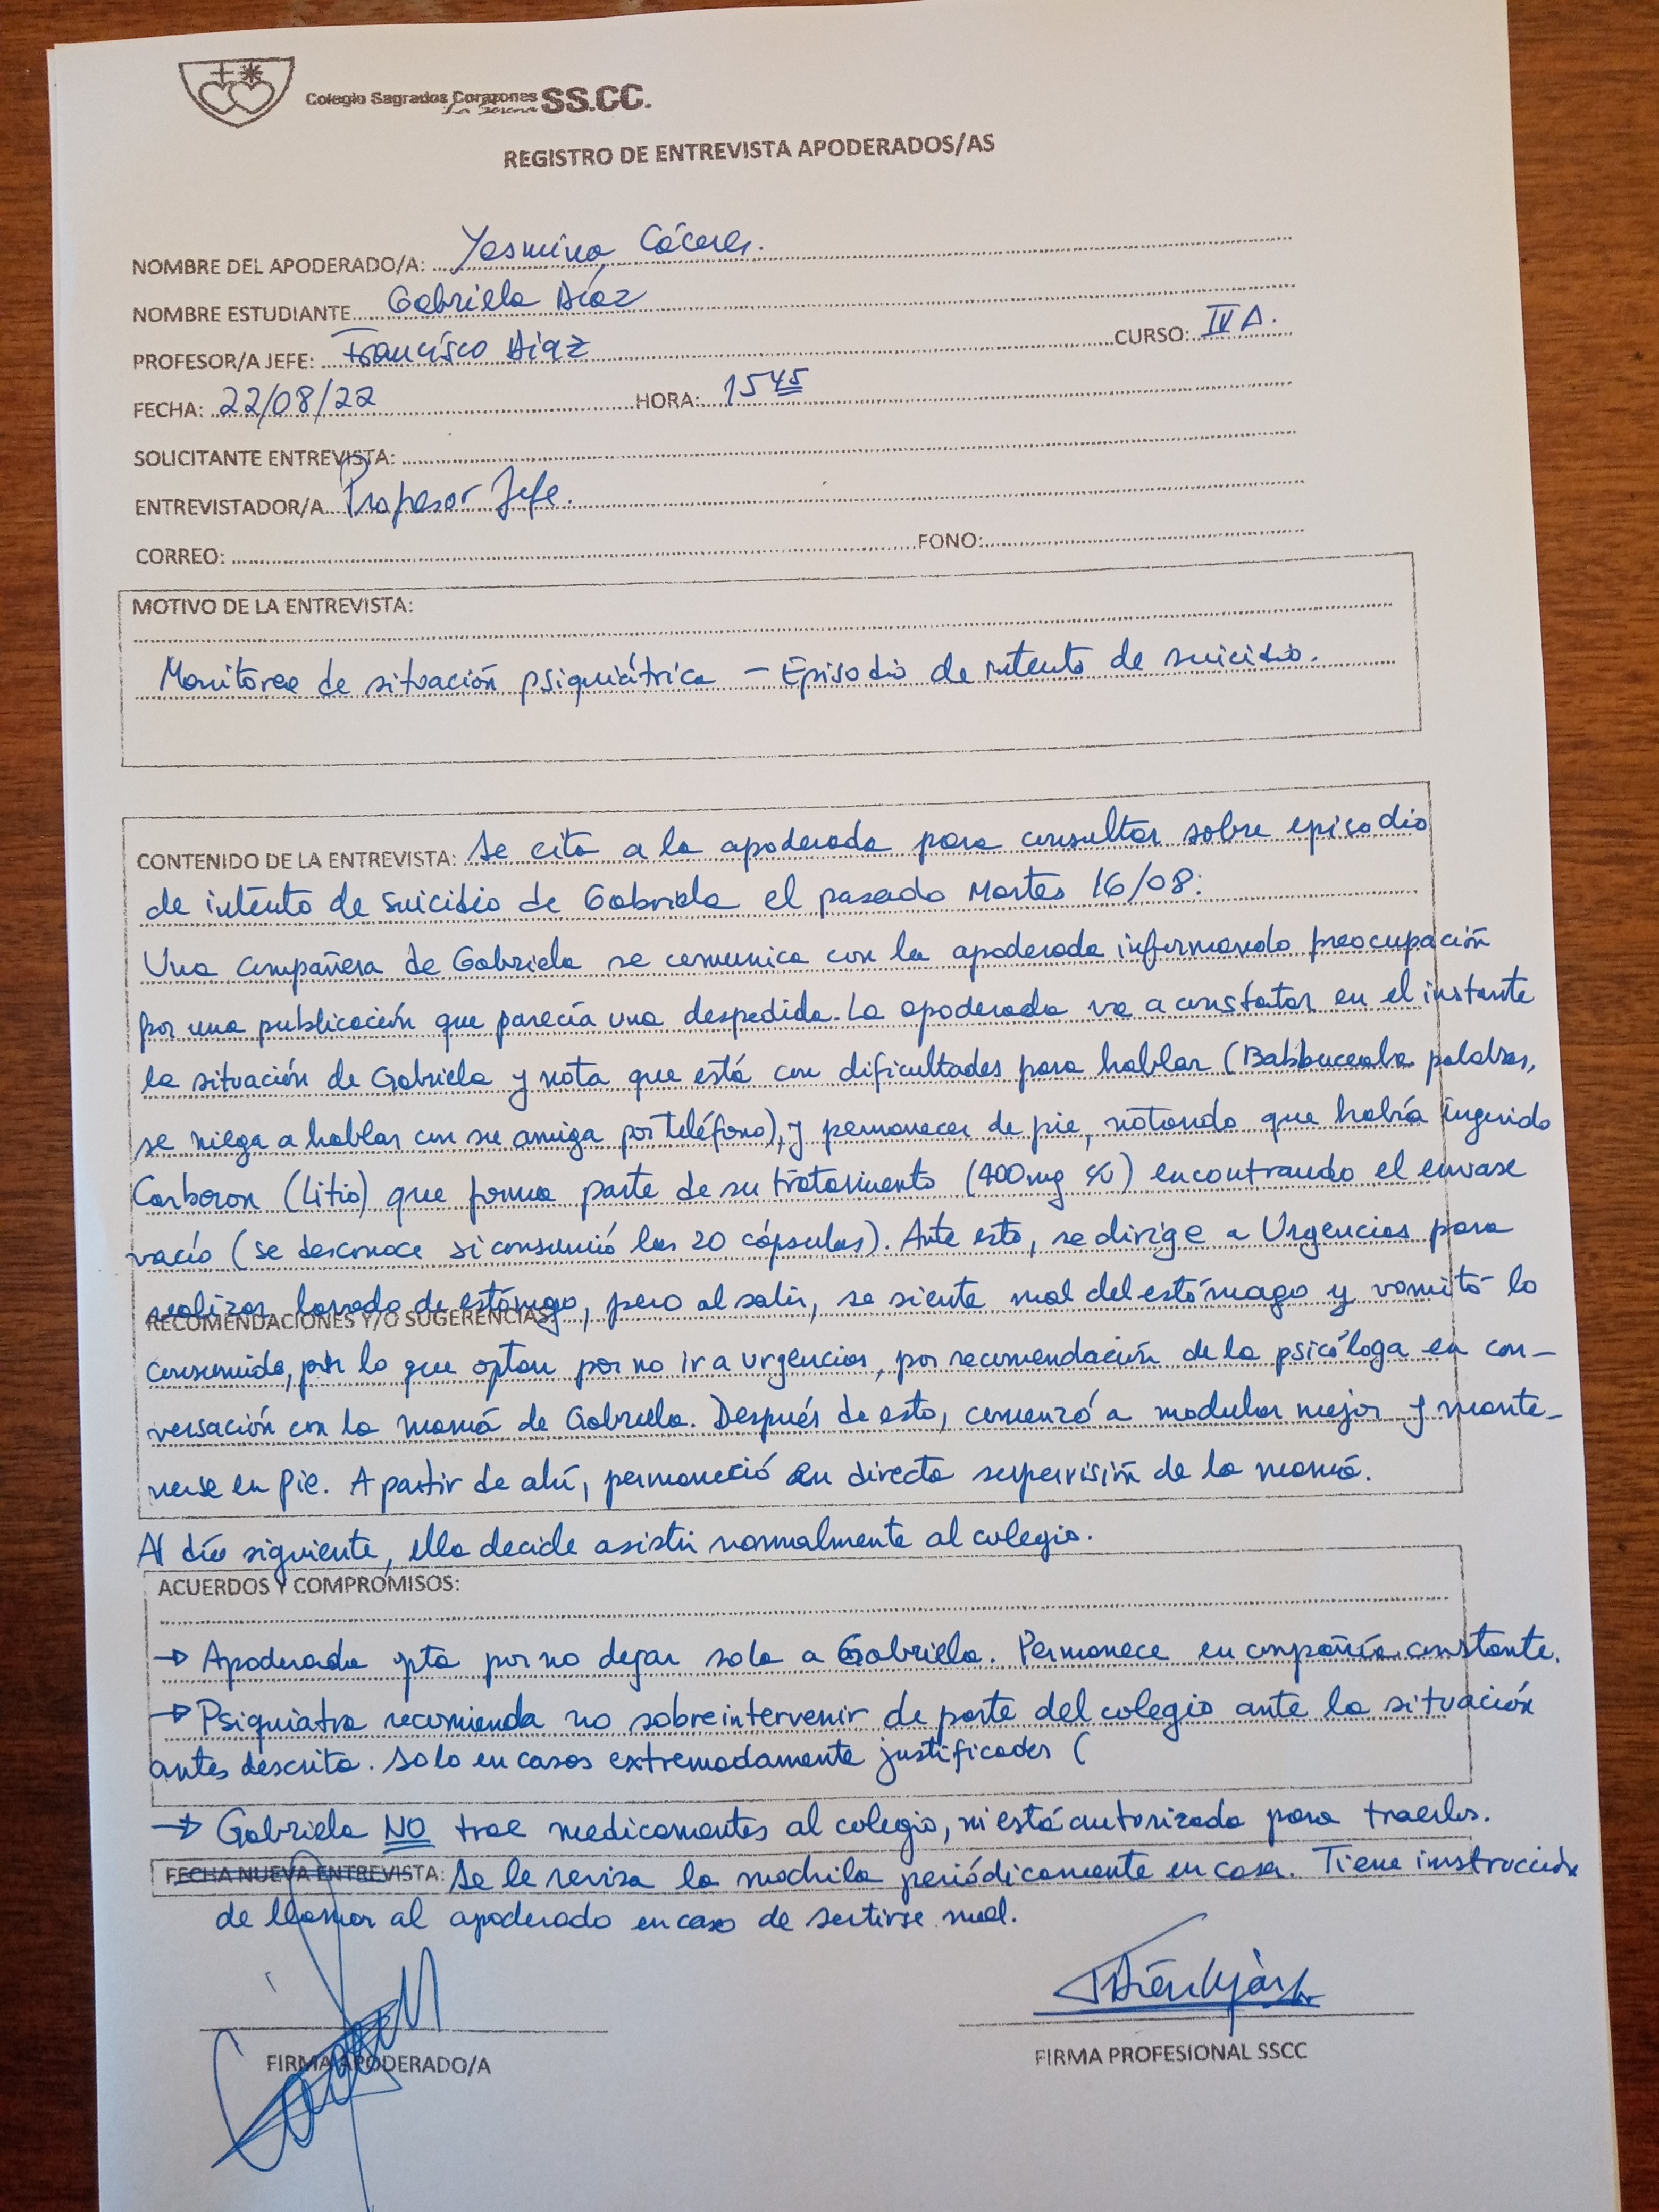 Colegio Sagrados Corazones SS.CC.
La Serena
REGISTRO DE ENTREVISTA APODERADOS/AS
NOMBRE DEL APODERADO/A: Yasmina Cáceres.
NOMBRE ESTUDIANTE Gabriela Díaz
PROFESOR/A JEFE: Francisco Díaz CURSO: IV A.
FECHA: 22/08/22 HORA: 15 45
SOLICITANTE ENTREVISTA:
ENTREVISTADOR/A Profesor Jefe.
CORREO: FONO:
MOTIVO DE LA ENTREVISTA:
Monitoreo de situación psiquiátrica - Episodio de intento de suicidio.
CONTENIDO DE LA ENTREVISTA: Se cita a la apoderada para consultar sobre episodio
de intento de suicidio de Gabriela el pasado Martes 16/08:
Una compañera de Gabriela se comunica con la apoderada informando preocupación
por una publicación que parecía una despedida. La apoderada va a constatar en el instante
la situación de Gabriela y nota que está con dificultades para hablar (Balbuceaba palabras,
se niega a hablar con su amiga por teléfono), y permanecer de pie, notando que había ingerido
Carboron (Litio) que forma parte de su tratamiento (400mg) encontrando el envase
vacío (se desconoce si consumió las 20 cápsulas). Ante esto, se dirige a Urgencias para
realizar lavado de estómago, pero al salir, se siente mal del estómago y vomitó lo
RECOMENDACIONES Y/O SUGERENCIAS:
consumido, por lo que optan por no ir a urgencias, por recomendación de la psicóloga en con-
versación con la mamá de Gabriela. Después de esto, comenzó a modular mejor y mante-
nerse en pie. A partir de ahí, permaneció en directa supervisión de la mamá.
Al día siguiente, ella decide asistir normalmente al colegio.
ACUERDOS Y COMPROMISOS:
→ Apoderada opta por no dejar sola a Gabriela. Permanece en compañía constante.
→ Psiquiatra recomienda no sobreintervenir de parte del colegio ante la situación
antes descrita. Solo en casos extremadamente justificados (
→ Gabriela NO trae medicamentos al colegio, ni está autorizada para traerlos.
FECHA NUEVA ENTREVISTA: Se le revisa la mochila periódicamente en casa. Tiene instrucción
de llamar al apoderado en caso de sertirse mal.
FIRMA APODERADO/A FIRMA PROFESIONAL SSCC